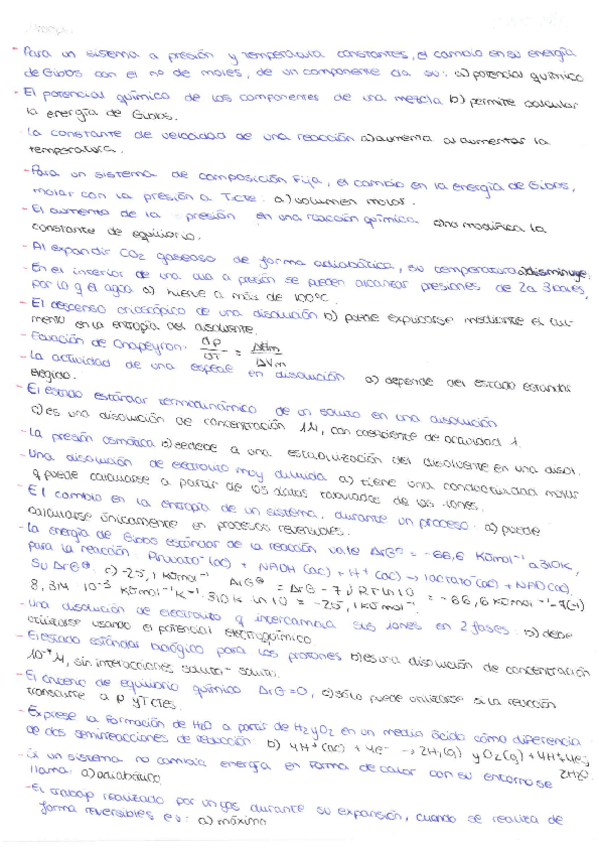 - Para un sistema a presión y temperatura constantes, el cambio en su energía
de Gibbs con el nº de moles, de un componente da su: a) potencial químico
- El potencial químico de los componentes de una mezcla b) permite calcular
la energía de Gibbs.
- La constante de velocidad de una reacción a) aumenta al aumentar la
temperatura.
- Para un sistema de composición fija, el cambio en la energía de Gibbs,
molar con la presión a T cte: a) volumen molar.
- El aumento de la presión en una reacción química c) no modifica la
constante de equilibrio.
- Al expandir CO2 gaseoso de forma adiabática, su temperatura a) disminuye.
- En el interior de una olla a presión se pueden alcanzar presiones de 2 a 3 bares,
por lo q el agua a) hierve a más de 100ºC.
- El descenso crioscópico de una disolución b) puede explicarse mediante el au-
mento en la entropía del disolvente.
- Ecuación de Clapeyron: dp/dT = ΔHm/ΔVm
- La actividad de una especie en disolución a) depende del estado estándar
elegido.
- El estado estándar termodinámico de un soluto en una disolución
c) es una disolución de concentración 1M, con coeficiente de actividad 1.
- La presión osmótica b) se debe a una estabilización del disolvente en una disol.
- Una disolución de electrolito muy diluida a) tiene una conductividad molar
q puede calcularse a partir de los datos tabulados de los iones.
- El cambio en la entropía de un sistema, durante un proceso: a) puede
calcularse únicamente en procesos reversibles.
- La energía de Gibbs estándar de la reacción vale ΔrGº = -66,6 KJmol⁻¹ a 310K,
para la reacción: Piruvato⁻(ac) + NADH (ac) + H⁺(ac) → lactato⁻(ac) + NAD(ac).
Su ΔrG⊕ c) -25,1 KJmol⁻¹ ΔrG⊕ = ΔrG - 7 ν RT ln10 = -66,6 KJmol⁻¹ - 7(-1)
8,314 · 10⁻³ KJmol⁻¹K⁻¹ · 310K · ln 10 = -25,1 KJmol⁻¹.
- Una disolución de electrolito q intercambia sus iones en 2 fases: b) debe
utilizarse usando el potencial electroquímico
- El estado estándar biológico para los protones b) es una disolución de concentración
10⁻⁷M, sin interacciones soluto-soluto.
- El criterio de equilibrio químico ΔrG=0, c) sólo puede utilizarse si la reacción
transcurre a p y T ctes.
- Exprese la formación de H2O a partir de H2 y O2 en un medio ácido cómo diferencia
de dos semirreacciones de reducción: b) 4H⁺(ac) + 4e⁻ → 2H2(g) y O2(g) + 4H⁺ + 4e⁻→
2H2O
- Si un sistema no cambia energía en forma de calor con su entorno se
llama: a) adiabático
- El trabajo realizado por un gas durante su expansión, cuando se realiza de
forma reversible es: a) máximo